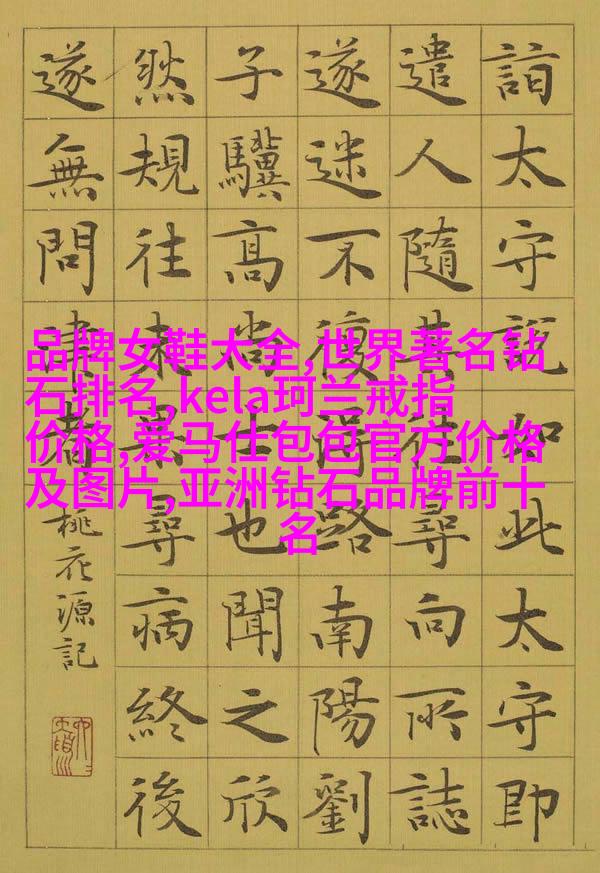 詣太守說如此太守即
遣人隨其往尋向所誌
遂迷不復得路南陽劉
子驥高尚士也聞之欣
然規往未果尋病終後
遂無問津者
桃花源記
品牌女鞋大全,世界著名钻
石排名,kela珂兰戒指
价格,爱马仕包包官方价格
及图片,亚洲钻石品牌前十
名